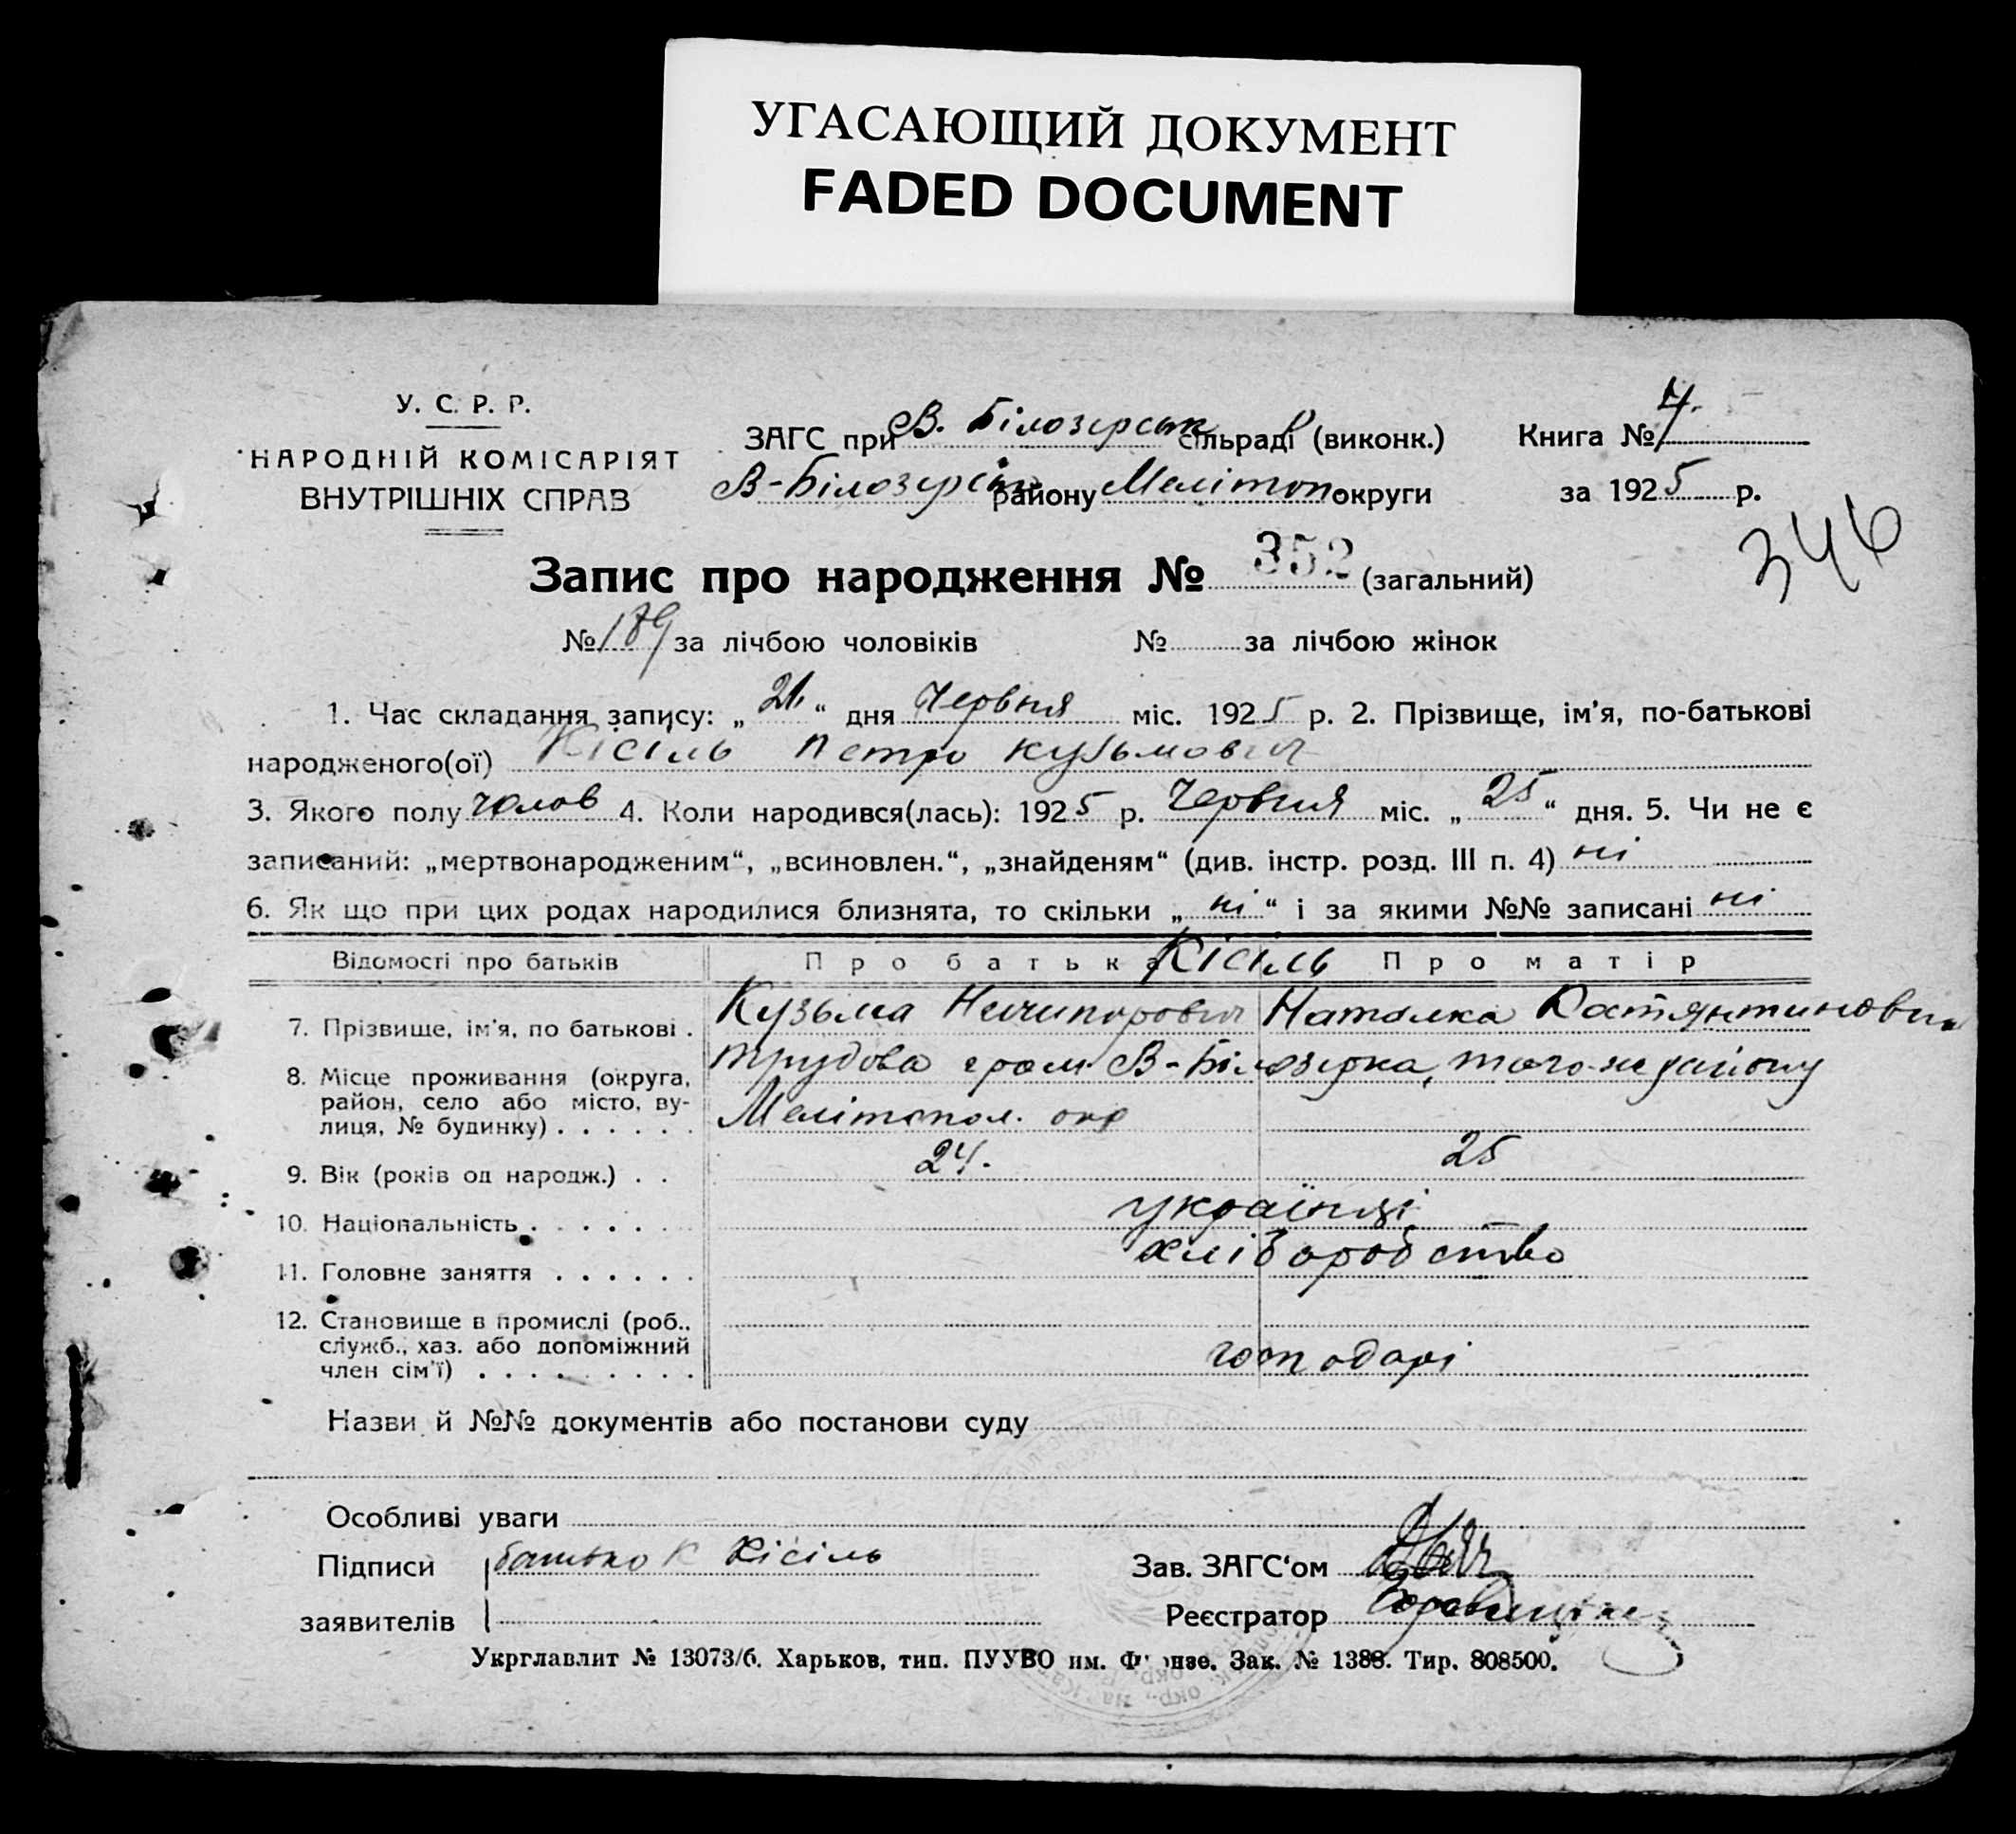 УГАСАЮЩИЙ ДОКУМЕНТ
FADED DOCUMENT
У. С. Р. Р.
НАРОДНІЙ КОМІСАРІЯТ
ВНУТРІШНІХ СПРАВ
ЗАГС при В. Білозерськ сільраді (виконк.)
В-Білозерськ району Мелітоп округи
Книга №
за 1925 р.
346
Запис про народження № 352 (загальний)
№ 189 за лічбою чоловіків № за лічбою жінок
1. Час складання запису: „ “ дня Червня міс. 1925 р. 2. Прізвище, ім'я, по-батькові
народженого(ої) Кісіль Петро Кузьмович
3. Якого полу чолов 4. Коли народився(лась): 1925 р. Червня міс. „25“ дня. 5. Чи не є
записаний: „мертвонародженим“, „всиновлен.“, „знайденям“ (див. інстр. розд. III п. 4) ні
6. Як що при цих родах народилися близнята, то скільки „ні“ і за якими №№ записані ні
Відомості про батьків Про батька Кісіль Про матір
7. Прізвище, ім'я, по батькові . Кузьма Ничипорович Наталка Костянтиновна
8. Місце проживання (округа, район, село або місто, ву-лиця, № будинку) . . . . . . Трудова гром В-Білозерка, того-же району
Мелітопол. окр
9. Вік (років од народж.) . . 24. 25
10. Національність . . . . . . українці
11. Головне заняття . . . . . . хліборобство
12. Становище в промислі (роб.. служб., хаз. або допоміжний член сім'ї) . . . . . . . . . господарі
Назви й №№ документів або постанови суду
Особливі уваги
Підписи батько К Кісіль
заявителів
Зав. ЗАГС‘ом
Реєстратор
Укрглавлит № 13073/б. Харьков, тип. ПУУВО им. Фрунзе. Зак. № 1388. Тир. 808500.